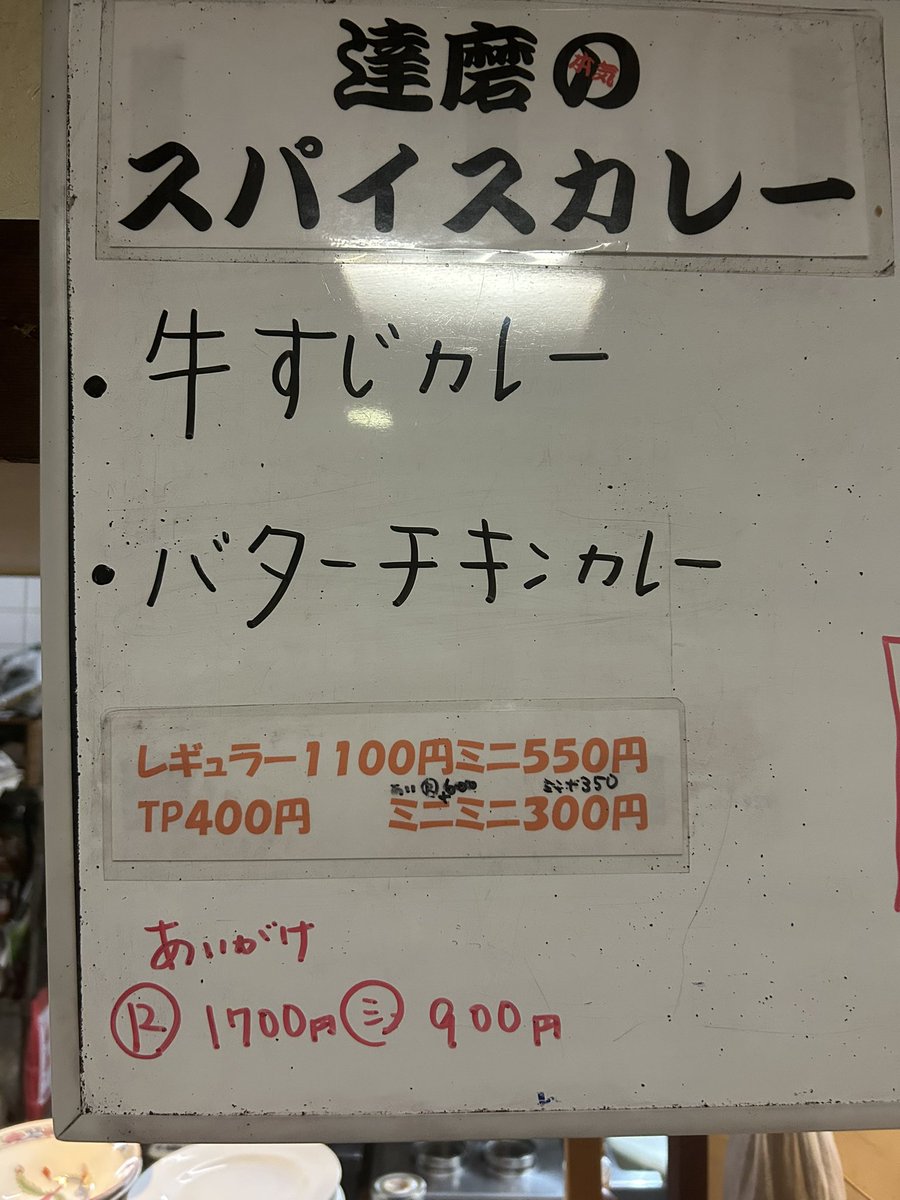 達磨の
本気
スパイスカレー
・牛すじカレー
・バターチキンカレー
レギュラー1100円ミニ550円
Ⓡ+600 ミニ+350
TP400円 ミニミニ300円
あいがけ
Ⓡ 1700円 ミニ 900円